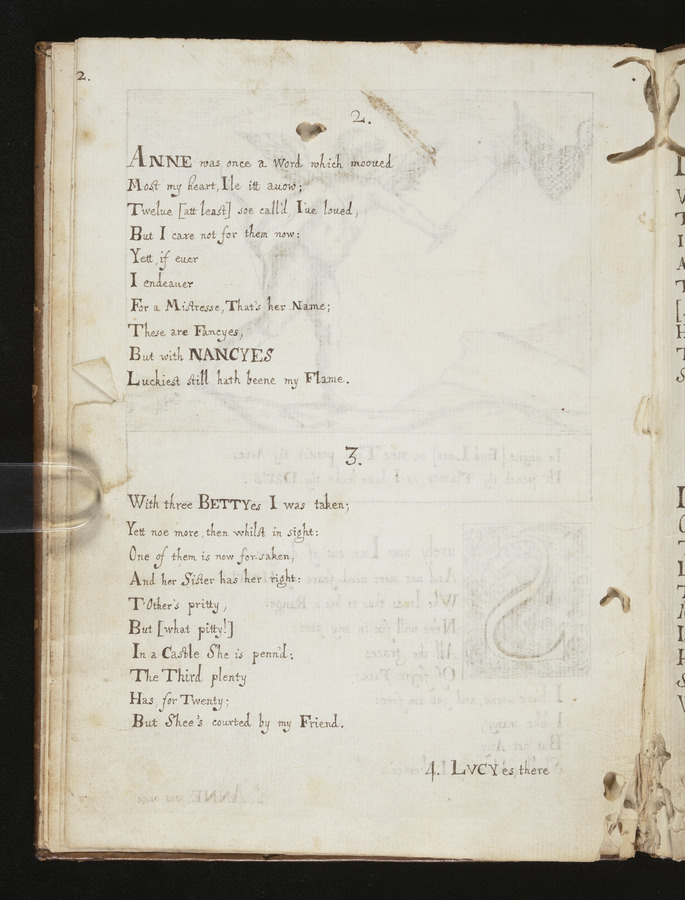 2.
2.
ANNE was once a Word which mooued
Most my heart, I'le itt auow;
Twelue [att least] soe call'd, I'ue loued,
But I care not for them now:
Yett, if euer
I endeauer
For a Mistresse, That's her Name;
These are Fancyes,
But with NANCYES
Luckiest still hath beene my Flame.
3.
With three BETTYes I was taken;
Yett noe more, then whilst in sight:
One of them is now forsaken,
And her Sister has her right:
T'Other's pritty,
But [what pitty!]
In a Castle She is penn'd;
The Third plenty
Has, for Twenty;
But Shee's courted by my Friend.
4. LVCYes, there